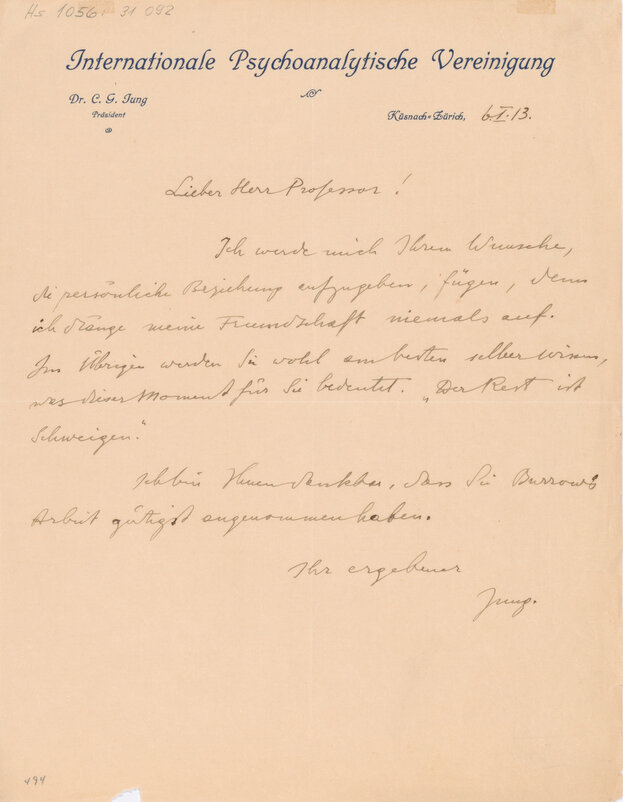 Hs 1056: 31 092
Internationale Psychoanalytische Vereinigung
Dr. C. G. Jung
Präsident
Küsnach-Zürich, 6.I.13.
Lieber Herr Professor!
Ich werde mich Ihrem Wunsche,
die persönliche Beziehung aufzugeben, fügen, denn
ich dränge meine Freundschaft niemals auf.
Im Übrigen werden Sie wohl am besten selber wissen,
was dieser Moment für Sie bedeutet. „Der Rest ist
Schweigen."
Ich bin Ihnen dankbar, dass Sie Burrow's
Arbeit gütigst angenommen haben.
Ihr ergebener
Jung.
494